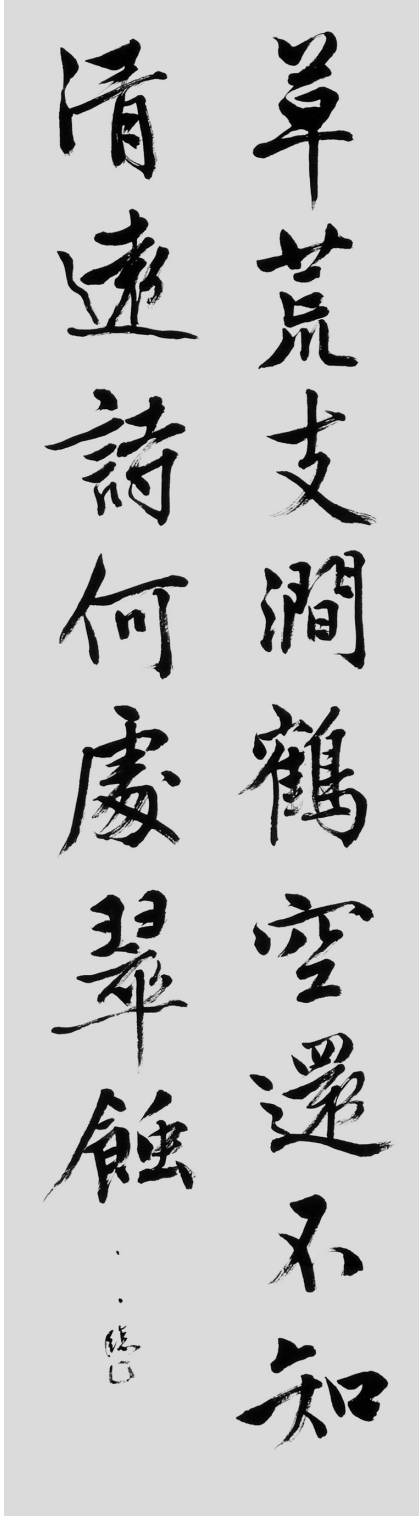 草荒支澗鶴空還不知
清遠詩何處翠蝕